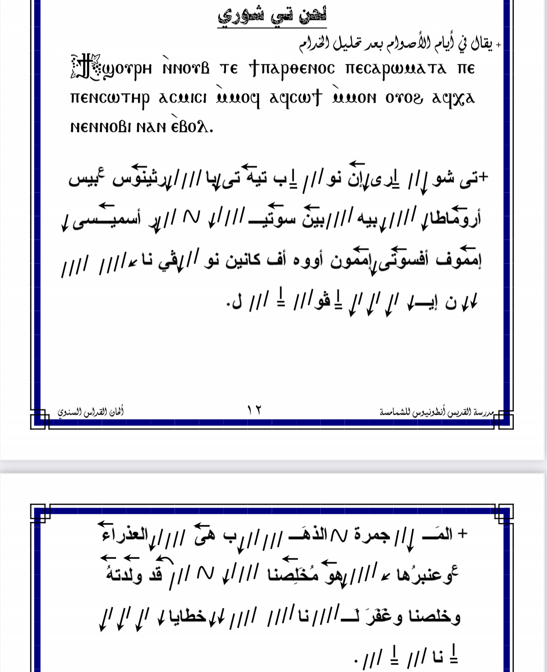 لحن تي شوري
+ يقال في أيام الأصوام بعد تحليل الخدام
Ϯϣⲟⲩⲣⲏ ⲛ̀ⲛⲟⲩⲃ ⲧⲉ ϯⲡⲁⲣⲑⲉⲛⲟⲥ ⲡⲉⲥⲁⲣⲱⲙⲁⲧⲁ ⲡⲉ
ⲡⲉⲛⲥⲱⲧⲏⲣ ⲁⲥⲙⲓⲥⲓ ⲙ̀ⲙⲟϥ ⲁϥⲥⲱϯ ⲙ̀ⲙⲟⲛ ⲟⲩⲟϩ ⲁϥⲭⲁ
ⲛⲉⲛⲛⲟⲃⲓ ⲛⲁⲛ ⲉ̀ⲃⲟⲗ.
+تى شو رى إن نو ب تيه تى با رثينوس بيس
أروماطا بيه بين سوتيـ ر أسميـسى
إمموف أفسوتى إممون أووه أف كانين نو ڤي نا
ن إيـ ڤو ل.
مدرسة القديس أنطونيوس للشمامسة ١٢ ألحان القداس السنوي
+ المَـ جمرة الذهَـ ب هىَ العذراء
وعنبرُها هو مُخَلِصنا قد ولدتهُ
وخلصنا وغَفَرَ لَـ نا خطايا
نا .